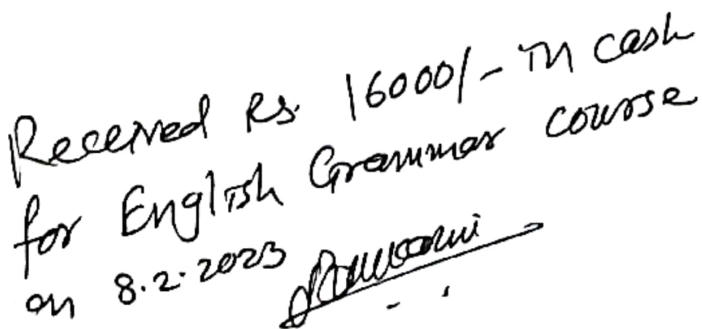 Received Rs. 16000/- in cash
for English Grammar course
on 8.2.2023